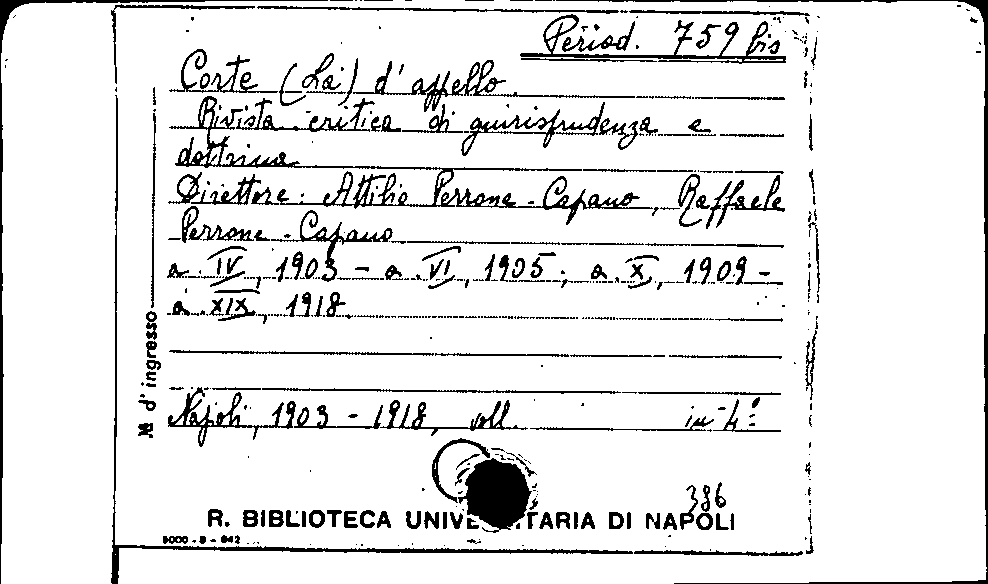 Period. 759 bis
Corte (La) d'appello.
Rivista critica di giurisprudenza e
dottrina
Direttore: Attilio Perrone-Capano, Raffaele
Perrone-Capano
a. IV, 1903 - a. VI, 1905; a. X, 1909 -
a. XIX, 1918.
Napoli, 1903 - 1918, voll. in-4°
N. d'ingresso
386
R. BIBLIOTECA UNIVE TARIA DI NAPOLI
5000 - 9 - 942